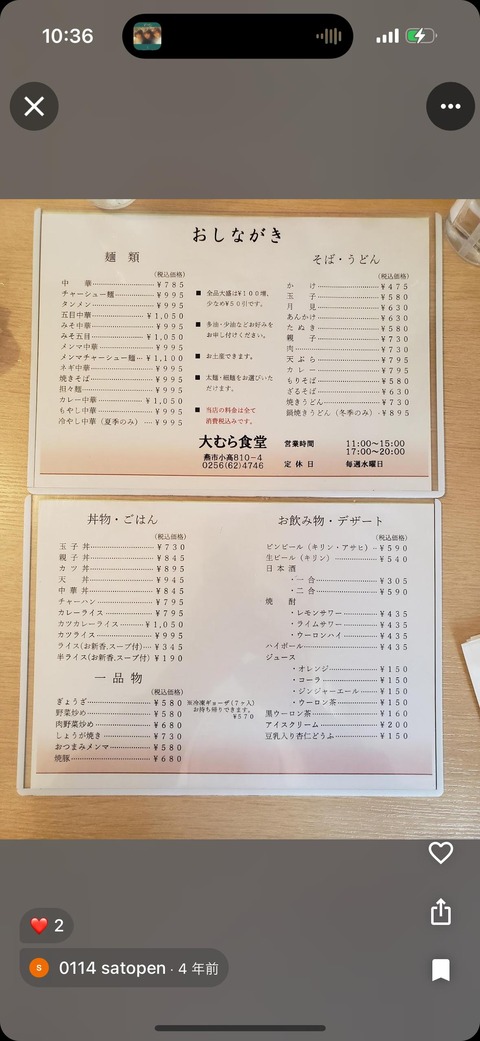 10:36
おしながき
麺 類
(税込価格)
中 華 ¥785
チャーシュー麺 ¥995
タンメン ¥995
五目中華 ¥1,050
みそ中華 ¥995
みそ五目 ¥1,050
メンマ中華 ¥995
メンマチャーシュー麺 ¥1,100
ネギ中華 ¥995
焼きそば ¥995
担々麺 ¥995
カレー中華 ¥1,050
もやし中華 ¥995
冷やし中華(夏季のみ) ¥995
■ 全品大盛は¥100増、
少なめ¥50引です。
■ 多油・少油などお好みを
お申し付けください。
■ お土産できます。
■ 太麺・細麺をお選びいた
だけます。
■ 当店の料金は全て
消費税込みです。
そば・うどん
(税込価格)
か け ¥475
玉 子 ¥580
月 見 ¥630
あんかけ ¥630
たぬき ¥580
親 子 ¥730
肉 ¥730
天ぷら ¥795
カレー ¥795
もりそば ¥580
ざるそば ¥630
焼きうどん ¥730
鍋焼きうどん(冬季のみ) ¥895
大むら食堂
燕市小高810-4
0256(62)4746
営業時間 11:00〜15:00
17:00〜20:00
定休日 毎週水曜日
丼物・ごはん
(税込価格)
玉子丼 ¥730
親子丼 ¥845
カツ丼 ¥895
天 丼 ¥945
中華丼 ¥845
チャーハン ¥795
カレーライス ¥795
カツカレーライス ¥1,050
カツライス ¥995
ライス(お新香、スープ付) ¥345
半ライス(お新香、スープ付) ¥190
一品物
(税込価格)
ぎょうざ ¥580
野菜炒め ¥580
肉野菜炒め ¥680
しょうが焼き ¥730
おつまみメンマ ¥580
焼豚 ¥680
※冷凍ギョーザ(7ヶ入)
お持ち帰りできます。
¥570
お飲み物・デザート
(税込価格)
ビンビール(キリン・アサヒ) ¥590
生ビール(キリン) ¥540
日本酒
・一合 ¥305
・二合 ¥590
焼 酎
・レモンサワー ¥435
・ライムサワー ¥435
・ウーロンハイ ¥435
ハイボール ¥435
ジュース
・オレンジ ¥150
・コーラ ¥150
・ジンジャーエール ¥150
・ウーロン茶 ¥150
黒ウーロン茶 ¥160
アイスクリーム ¥200
豆乳入り杏仁どうふ ¥150
❤️ 2
S 0114 satopen · 4 年前